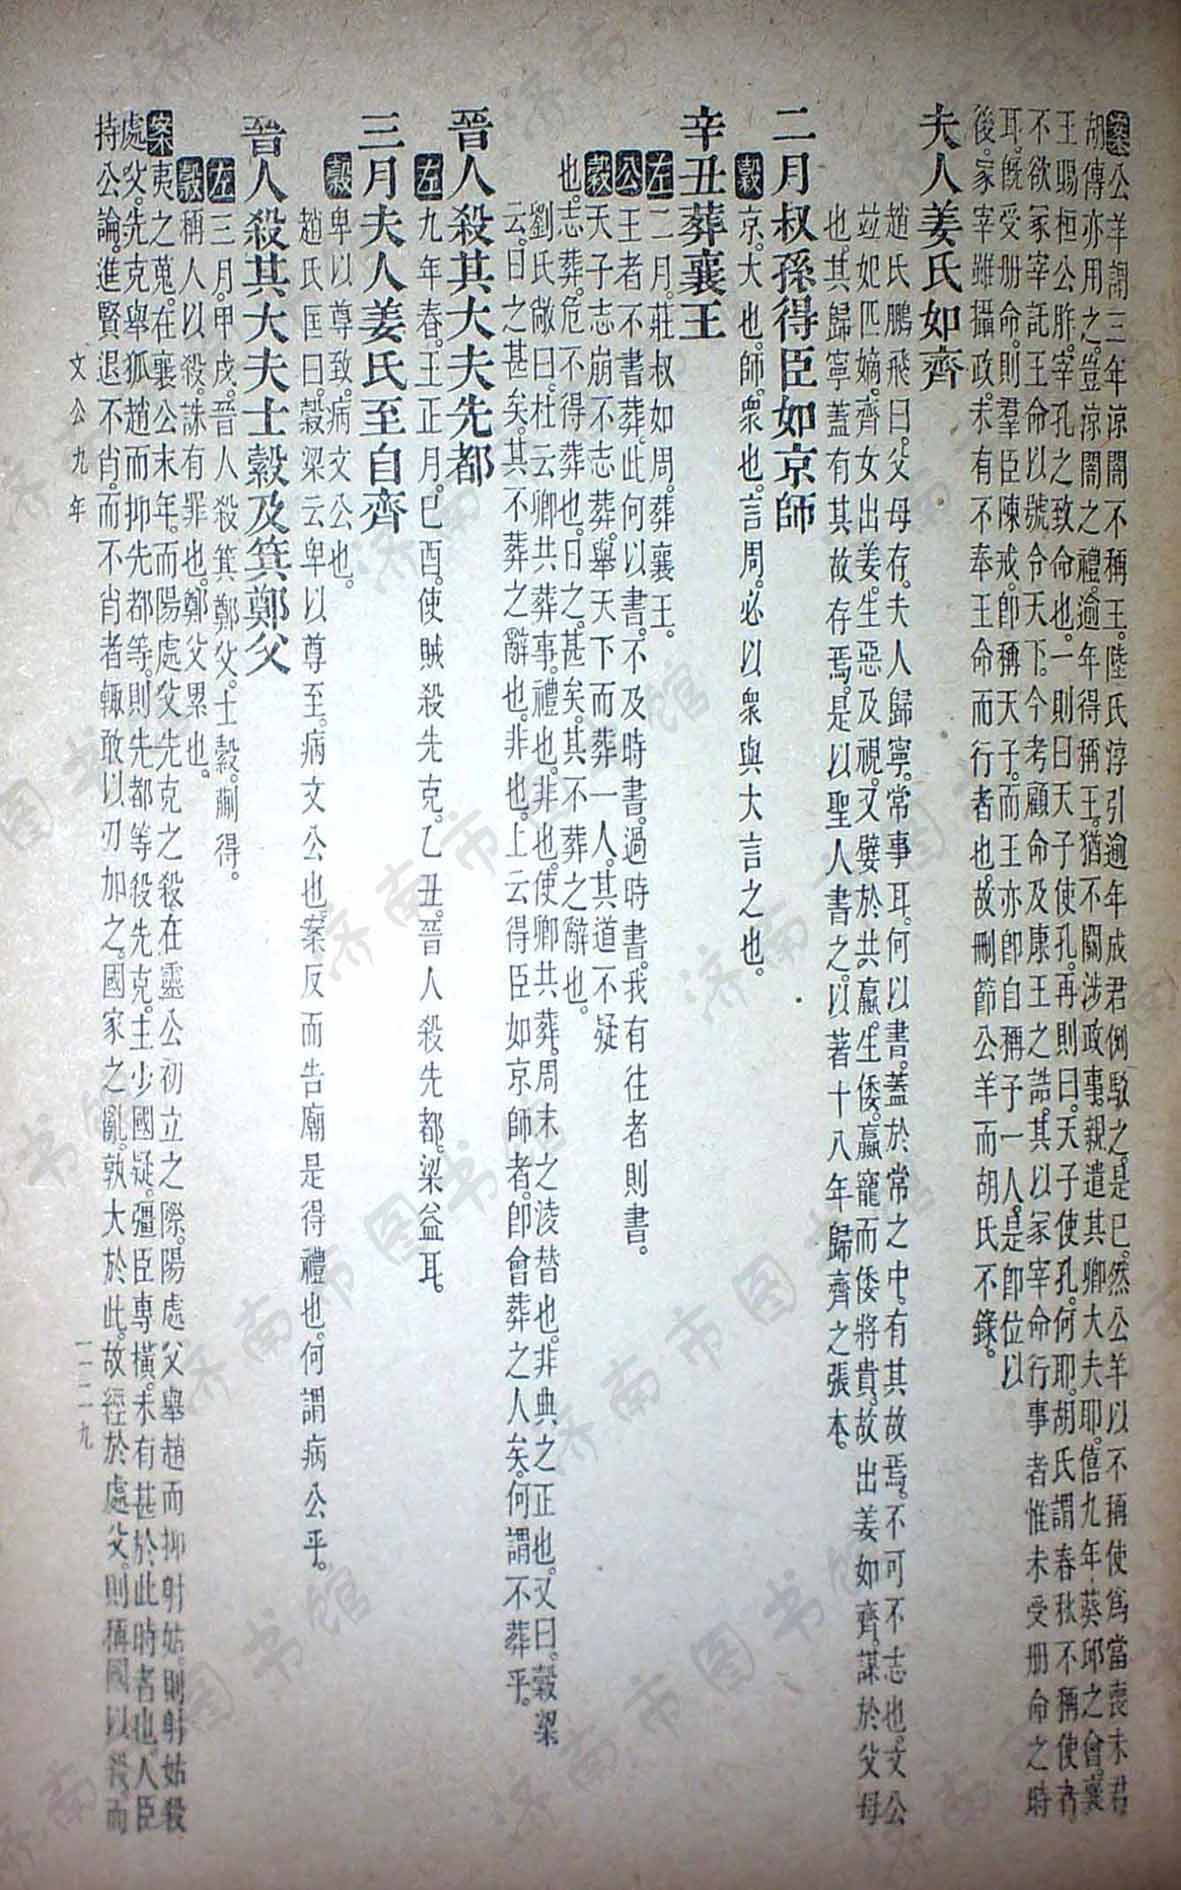 案公羊謂三年諒闇不稱王陸氏淳引逾年成君例駁之是已然公羊以不稱使爲當喪未君
胡傳亦用之豈諒闇之禮逾年得稱王猶不關涉政事親遣其卿大夫耶僖九年葵邱之會襄
王賜桓公胙宰孔之致命也一則曰天子使孔再則曰天子使孔何耶胡氏謂春秋不稱使者
不欲冢宰託王命以號令天下今考顧命及康王之誥其以冢宰命行事者惟未受册命之時
耳既受册命則羣臣陳戒卽稱天子而王亦卽自稱予一人是卽位以
後冢宰雖攝政未有不奉王命而行者也故刪節公羊而胡氏不錄
夫人姜氏如齊
趙氏鵬飛曰父母存夫人歸寧常事耳何以書蓋於常之中有其故焉不可不志也文公
竝妃匹嫡齊女出姜生惡及視又嬖於共嬴生倭嬴寵而倭將貴故出姜如齊謀於父母
也其歸寧蓋有其故存焉是以聖人書之以著十八年歸齊之張本
二月叔孫得臣如京師
穀京大也師衆也言周必以衆與大言之也
辛丑葬襄王
左二月莊叔如周葬襄王
公王者不書葬此何以書不及時書過時書我有往者則書
穀天子志崩不志葬舉天下而葬一人其道不疑
也志葬危不得葬也日之甚矣其不葬之辭也
劉氏敞曰杜云卿共葬事禮也非也使卿共葬周末之淩替也非典之正也又曰穀梁
云日之甚矣其不葬之辭也非也上云得臣如京師者卽會葬之人矣何謂不葬乎
晉人殺其大夫先都
左九年春王正月己酉使賊殺先克乙丑晉人殺先都梁益耳
三月夫人姜氏至自齊
穀卑以尊致病文公也
趙氏匡曰穀梁云卑以尊至病文公也案反而告廟是得禮也何謂病公乎
晉人殺其大夫士縠及箕鄭父
左三月甲戌晉人殺箕鄭父士縠蒯得
穀稱人以殺誅有罪也鄭父累也
案夷之蒐在襄公末年而陽處父先克之殺在靈公初立之際陽處父舉趙而抑射姑則射姑殺
處父先克舉狐趙而抑先都等則先都等殺先克主少國疑彊臣專橫未有甚於此時者也人臣
持公論進賢退不肖而不肖者輒敢以刃加之國家之亂孰大於此故經於處父則稱國以殺而
文公九年
一二一九